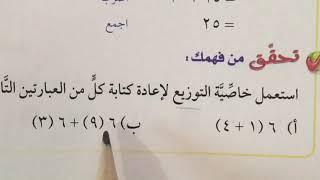 = ٢٥ اجمع
تحقق من فهمك:
استعمل خاصيَّة التوزيع لإعادة كتابة كلٍّ من العبارتين
أ) ٦ (١ + ٤) ب) ٦ (٩) + ٦ (٣)